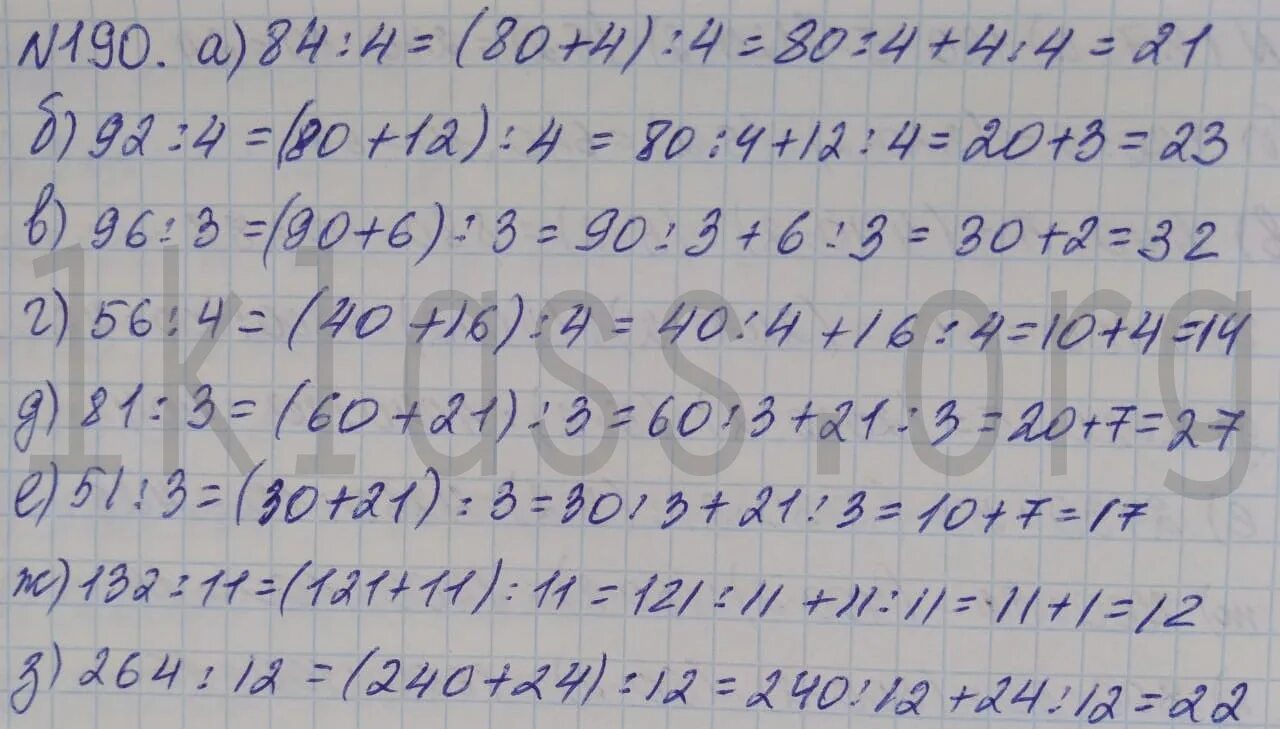 №190. а) 84:4 = (80+4):4 = 80:4+4:4 = 21
б) 92:4 = (80+12):4 = 80:4+12:4 = 20+3 = 23
в) 96:3 = (90+6):3 = 90:3+6:3 = 30+2 = 32
г) 56:4 = (40+16):4 = 40:4+16:4 = 10+4 = 14
д) 81:3 = (60+21):3 = 60:3+21:3 = 20+7 = 27
е) 51:3 = (30+21):3 = 30:3+21:3 = 10+7 = 17
ж) 132:11 = (121+11):11 = 121:11+11:11 = 11+1 = 12
з) 264:12 = (240+24):12 = 240:12+24:12 = 22
1klass.org